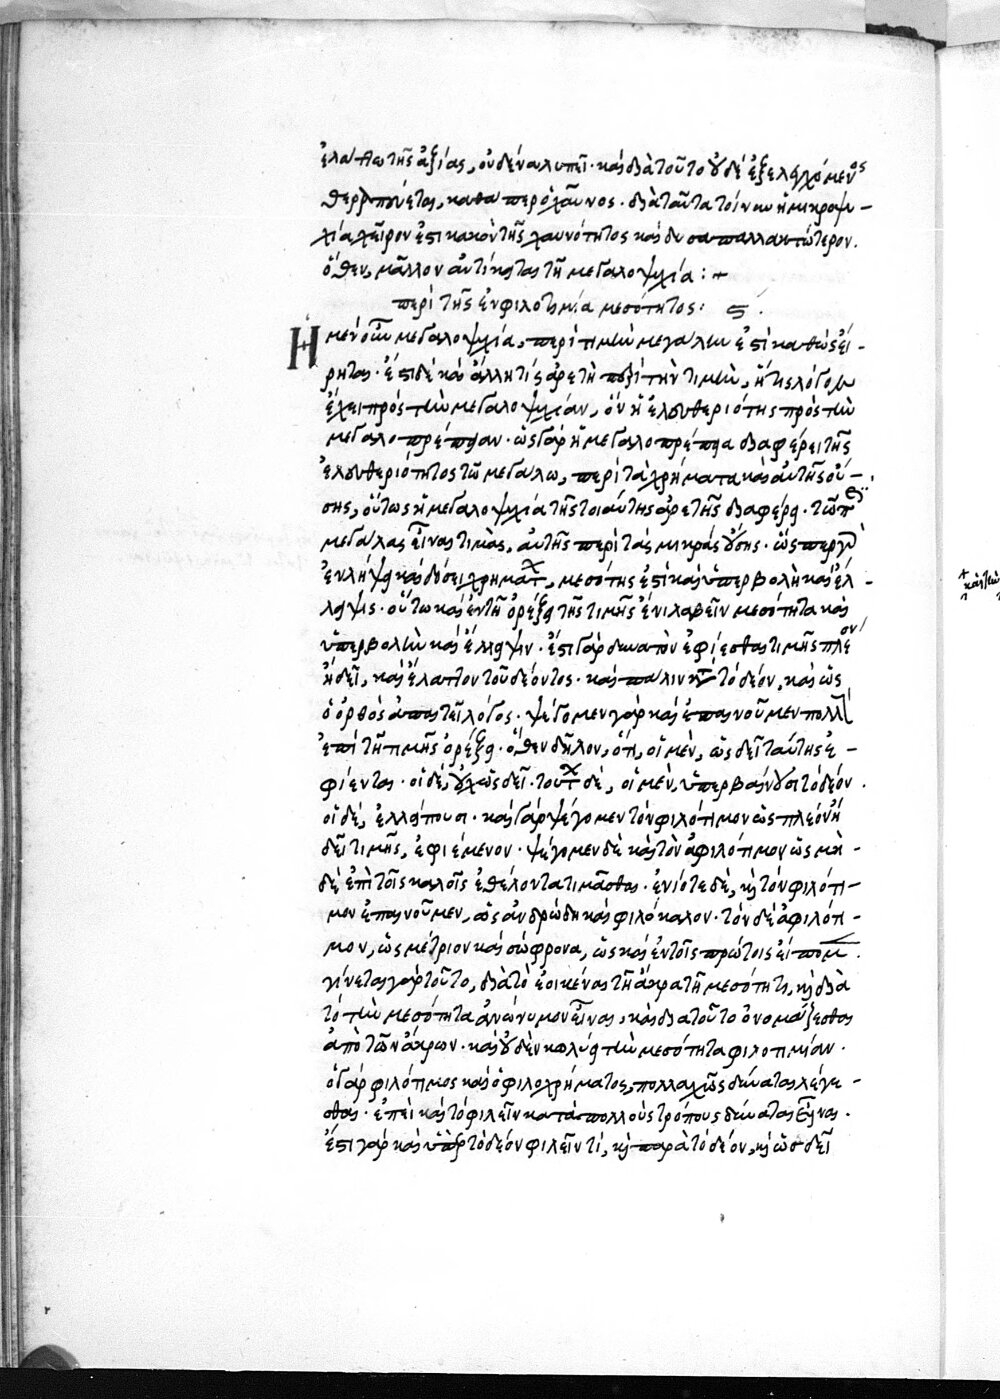 ἐλάττω τῆς ἀξίας, οὐδένα λυπεῖ· καὶ διὰ τοῦτο οὐδὲ ἐξελεγχόμενος
θεραπεύεται, καθάπερ ὁ χαῦνος. διὰ ταῦτα τοίνυν ἡ μικροψυ-
χία χεῖρον ἐστὶ κακὸν τῆς χαυνότητος καὶ δυσαπαλλακτώτερον.
ὅθεν, μᾶλλον ἀντίκειται τῇ μεγαλοψυχίᾳ :+
περὶ τῆς ἐν φιλοτιμίᾳ μεσότητος: ϛ.
Ἡ μὲν οὖν μεγαλοψυχία, περὶ τιμὴν μεγάλην ἐστὶ καθὼς εἴ-
ρηται· ἔστι δὲ καὶ ἄλλη τίς ἀρετὴ περὶ τὴν τιμὴν, ἥτις λόγον
ἔχει πρὸς τὴν μεγαλοψυχίαν, ὃν ἡ ἐλευθεριότης πρὸς τὴν
μεγαλοπρέπειαν· ὡς γὰρ ἡ μεγαλοπρέπεια διαφέρει τῆς
ἐλευθεριότητος τῷ μεγάλῳ, περὶ τὰ χρήματα καὶ αὐτῆς οὔ-
σης, οὕτως ἡ μεγαλοψυχία τῆς τοιαύτης ἀρετῆς διαφέρει· τῷ περὶ
μεγάλας εἶναι τιμὰς, αὐτῆς περὶ τὰς μικρὰς οὔσης· ὥσπερ γὰρ
ἐν λήψει καὶ δόσει χρημάτων, μεσότης ἐστὶ καὶ ὑπερβολὴ καὶ ἔλ-
λειψις· οὕτω καὶ ἐν τῇ ὀρέξει τῆς τιμῆς ἔνι λαβεῖν μεσότητα καὶ
ὑπερβολὴν καὶ ἔλλειψιν· ἔστι γὰρ δυνατὸν ἐφίεσθαι τιμῆς πλέον
ἢ δεῖ, καὶ ἔλαττον τοῦ δέοντος· καὶ πάλιν κατὰ τὸ δέον, καὶ ὡς
ὁ ὀρθὸς ἀπαιτεῖ λόγος· ψέγομεν γὰρ καὶ ἐπαινοῦμεν πολλοὺς
ἐπὶ τῇ τιμῆς ὀρέξει· ὅθεν δῆλον, ὅτι, οἱ μὲν, ὡς δεῖ ταύτης ἐ-
φίενται· οἱ δὲ, οὐχ ὡς δεῖ· τούτων δὲ, οἱ μὲν, ὑπερβαίνουσι τὸ δέον.
οἱ δὲ, ἐλλείπουσι· καὶ γὰρ ψέγομεν τὸν φιλότιμον ὡς πλέον ἢ
δεῖ τιμῆς, ἐφιέμενον· ψέγομεν δὲ καὶ τὸν ἀφιλότιμον ὡς μη-
δὲ ἐπὶ τοῖς καλοῖς ἐθέλοντα τιμᾶσθαι· ἐνίοτε δὲ, καὶ τὸν φιλότι-
μον ἐπαινοῦμεν, ὡς ἀνδρώδη καὶ φιλόκαλον· τὸν δὲ ἀφιλότι-
μον, ὡς μέτριον καὶ σώφρονα, ὡς καὶ ἐν τοῖς πρώτοις εἴπομεν.
γίνεται γὰρ τοῦτο, διὰ τὸ ἐοικέναι τῇ ἄκρα τῇ μεσότητι, καὶ διὰ
τὸ τὴν μεσότητα ἀνώνυμον εἶναι, καὶ διὰ τοῦτο ὀνομάζεσθαι
ἀπὸ τῶν ἄκρων· καὶ οὐδὲν κωλύει τὴν μεσότητα φιλοτιμίαν.
ὁ γὰρ φιλότιμος καὶ ὁ φιλοχρήματος, πολλαχῶς δύναται λέγε-
σθαι· ἐπεὶ καὶ τὸ φιλεῖν κατὰ πολλοὺς τρόπους δύναται εἶναι.
ἔστι γὰρ καὶ ὑπὲρ τὸ δέον φιλεῖν τί, καὶ παρὰ τὸ δέον, καὶ ὡς δεῖ